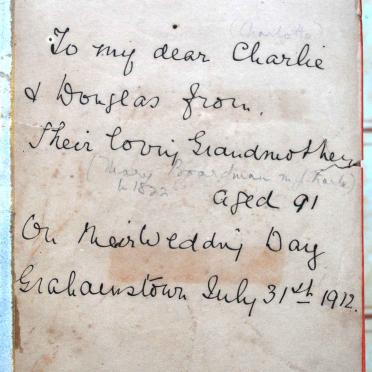 (Charlotte)
To my dear Charlie
& Douglas from.
Their loving Grandmother
(Mary Boardman m.
b 1822
aged 91
On their Wedding Day
Grahamstown July 31st 1912.